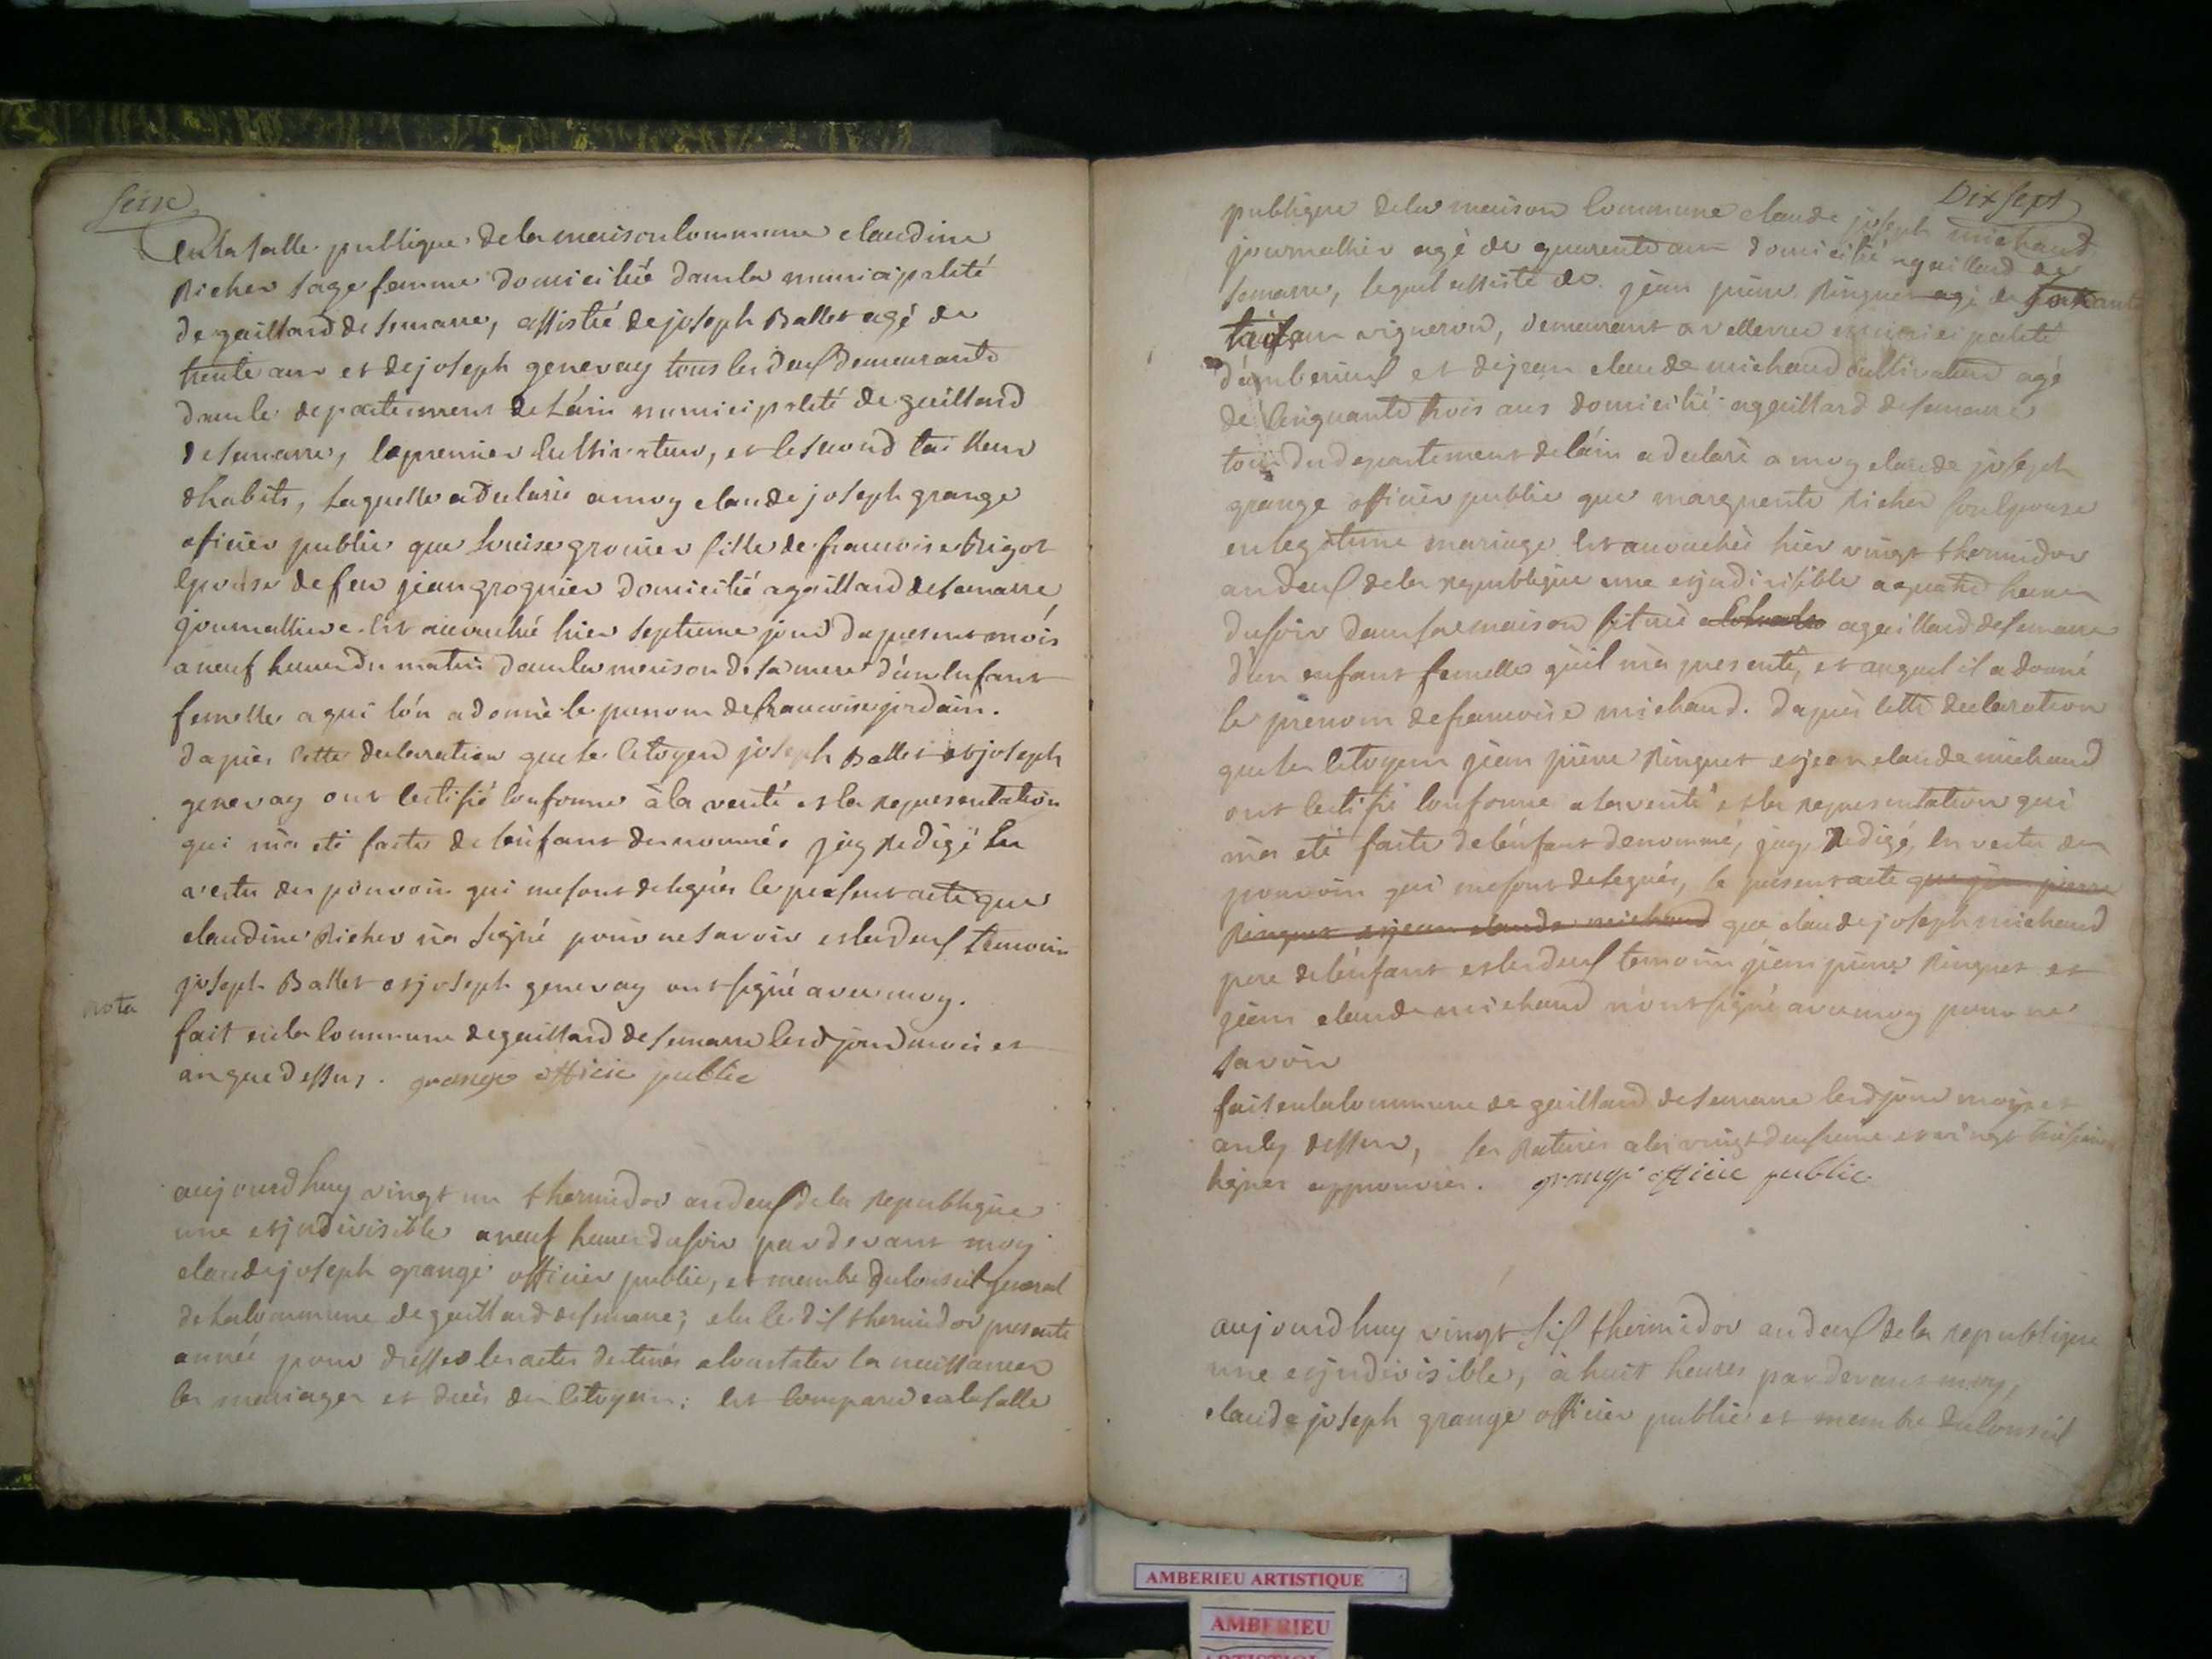 seixe
en la salle publique de la maison commune claudine
Richer sage femme domiciliée dans la municipalité
de gaillard de semarre, assistée de joseph Ballet agé de
trente ans et de joseph genevay tous les deux demeurants
dans le departement de l'áin municipalité de gaillard
de semarre, le premier cultivateur, et le second tailleur
d'habits, laquelle a declarée a moy claude joseph grange
oficier public que Louise fille de francoise Brigot
epouse de feu jean grognier domicilié a gaillard de semarre
journalliere est accouchée hier septieme jour du present mois
a neuf heures du matin dans la maison de sa mere d'un enfant
femelle a qui l'ón a donnè le prenom de francoise jordain.
dapres cette declaration que le citoyen joseph Ballet et joseph
genevay ont certifié conforme à la verité et la representation
qui m'a eté faite de l'enfant denommé, j'ay redigé en
vertu des pouvoirs qui me sont delegués le present acte que
claudine Richer n'a signé pour ne savoir et les deux temoins
joseph Ballet et joseph genevay ont signé avec moy.
nota
fait en la commune de gaillard de semarre lesd jour mois et
an que dessus. grange officie public
aujourdhuy vingt un thermidor an deux de la republique
une et jndivisible a neuf heures du soir pardevant moy
claude joseph grange officier public, et membre du conseil general
de la commune de gaillard de semarre; elu le dix thermidor presente
année pour dresser les actes destinés a constater la naissances
les mariages et decès des citoyens; est comparu en la salle
Dix sept
publique de la maison commune claude joseph michaud
journallier agé de quarente ans domicilié a gaillard de
semarre, lequel assisté de jean pierre Ringuet agé de
trois ans vigneron, demeurant a municipalité
d'amberieux et de jean claude michaud cultivateur agé
de cinquante trois ans domicilié a gaillard de semarre
tous du departement de l'áin a declaré a moy claude joseph
grange officier public que marguerite Richer son epouse
en legitime mariage est accouchée hier vingt thermidor
an deux de la republique une et jndivisible a quatre heures
du soir dans sa maison située a gaillard de semarre
d'un enfant femelle qúil m'a presenté, et auquel il a donné
le prenom de francoise michaud. dapres cette declaration
que les citoyens jean pierre Ringuet et jean claude michaud
ont certifié conforme a la verité et la representation qui
m'a eté faite de l'enfant denommé, j'ay Redigé, en vertu des
pouvoirs qui me sont delegués, le present acte que jean pierre
Ringuet et jean claude michaud que claude joseph michaud
pere de l'enfant et les deux temoins jean pierre Ringuet et
jean claude michaud n'ont signé avec moy pour ne
savoir
fait en la commune de gaillard de semarre lesd jour mois et
an dessus, les Ratures a les vingt deuxieme et vingt troisieme
lignes approuvées. grange officie public
aujourdhuy vingt six thermidor an deux de la republique
une et jndivisible, à huit heures pardevant moy,
claude joseph grange officier public et membre du conseil
AMBERIEU ARTISTIQUE
AMBERIEU
ARTISTIQUE